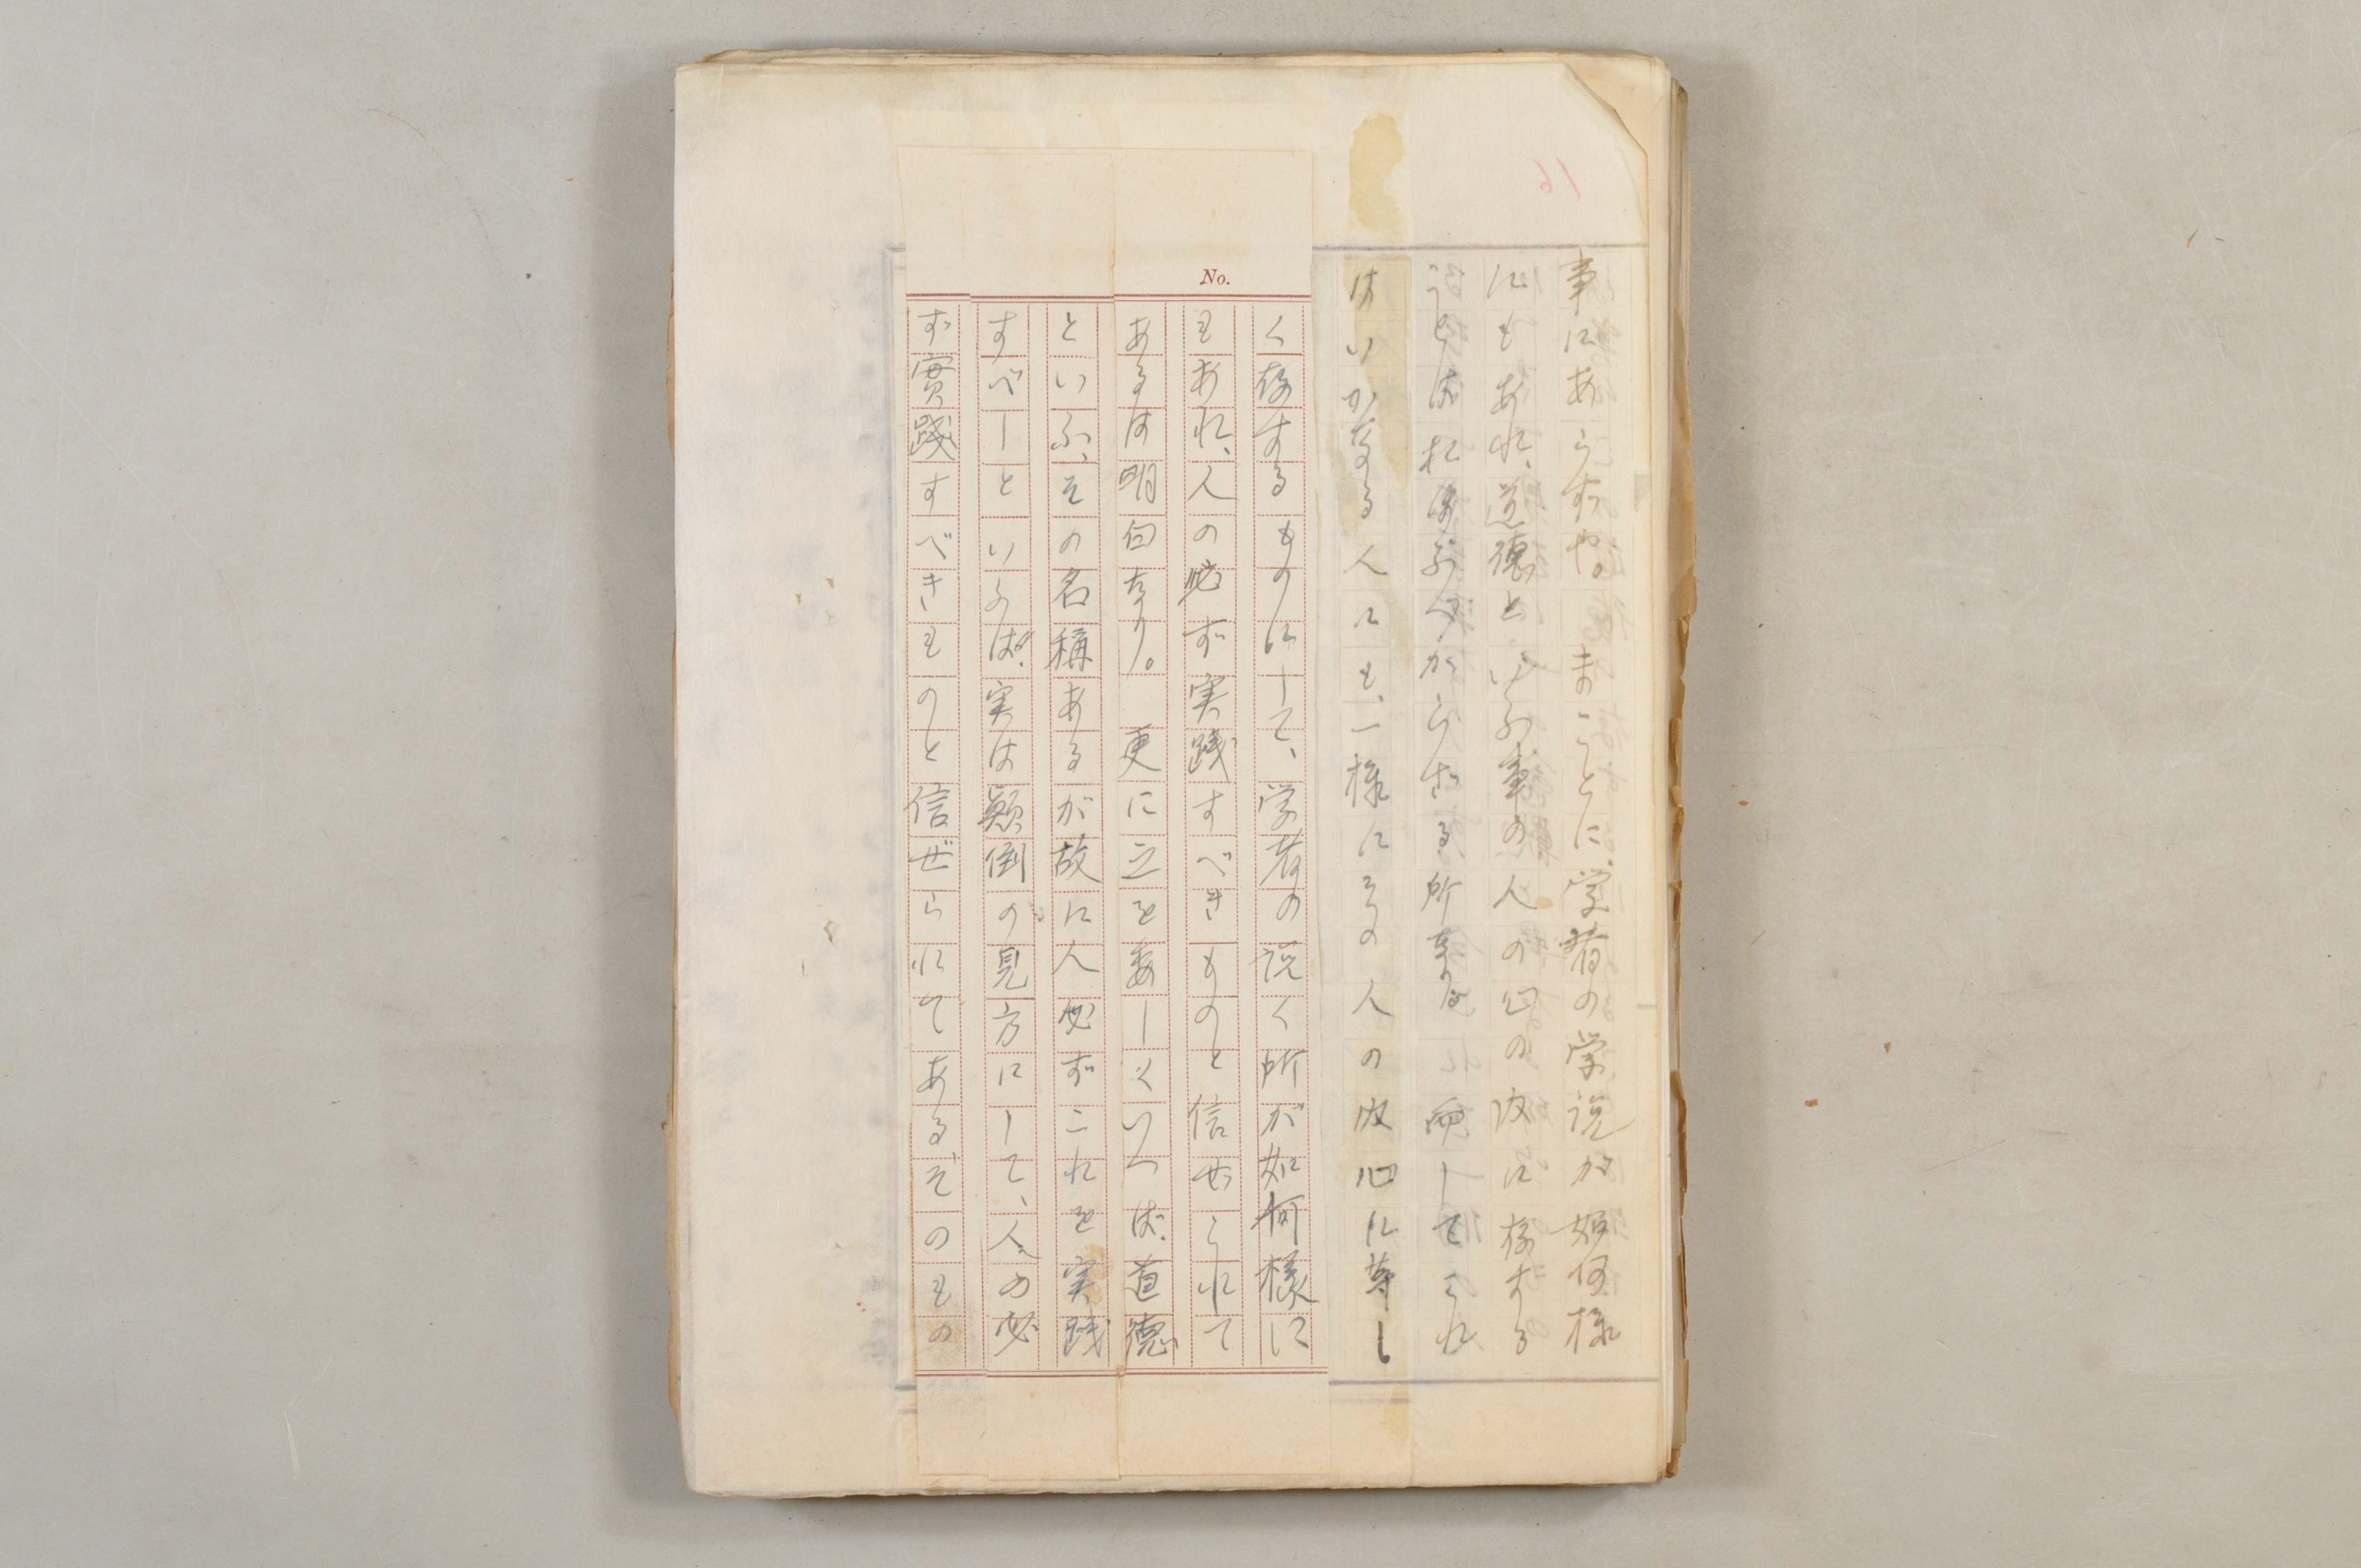 事にあらずや。まことに学者の学説が如何様
にもあれ、道徳といふ事の人の心の内に存する
ことは打消すべからざる所なり。而してこれ
はいかなる人にも、一様にその人の内心に等し
No.
く存するものにして、学者の説く所が如何様に
もあれ、人の必ず実践すべきものと信ぜられて
あるは明白なり。更に之を委しくいへば、道徳
といふ、その名稱あるが故に人必ずこれを実践
すべしといふは、実は顚倒の見方にして、人の必
ず實践すべきものと信ぜられてあるそのもの